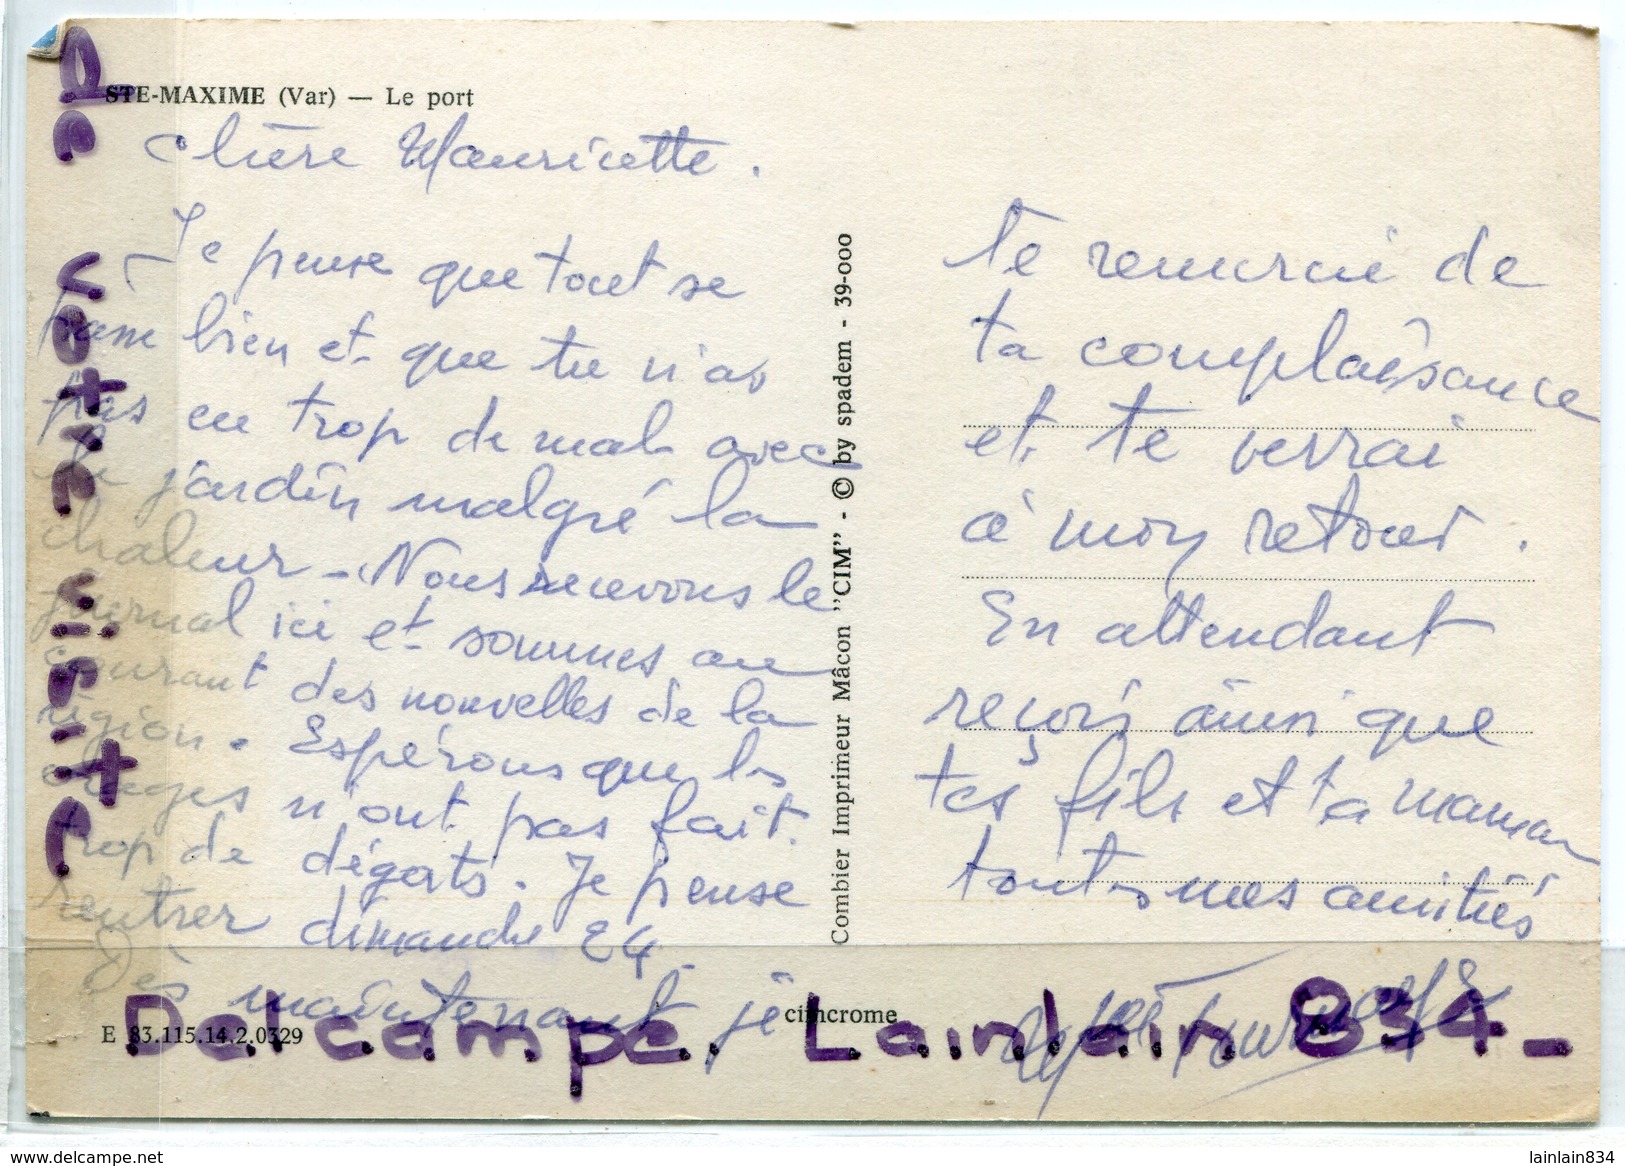 STE-MAXIME (Var) — Le port
Chère Mauricette.
Je pense que tout se
passe bien et que tu n'as
pas eu trop de mal avec
le jardin malgré la
chaleur - Nous recevons le
journal ici et sommes au
courant des nouvelles de la
région. Espérons que les
orages n'ont pas fait
trop de dégats. Je pense
rentrer dimanche 24.
Dès maintenant je
te remercie de
ta complaisance
et te verrai
à mon retour.
En attendant
reçois ainsi que
tes fils et ta maman
toutes mes amitiés
Combier Imprimeur Mâcon "CIM" - © by spadem - 39-000
cimcrome
E 83.115.14.2.0329
De votre visite.
Delcampe. Lainlain 834-
www.delcampe.net
lainlain834